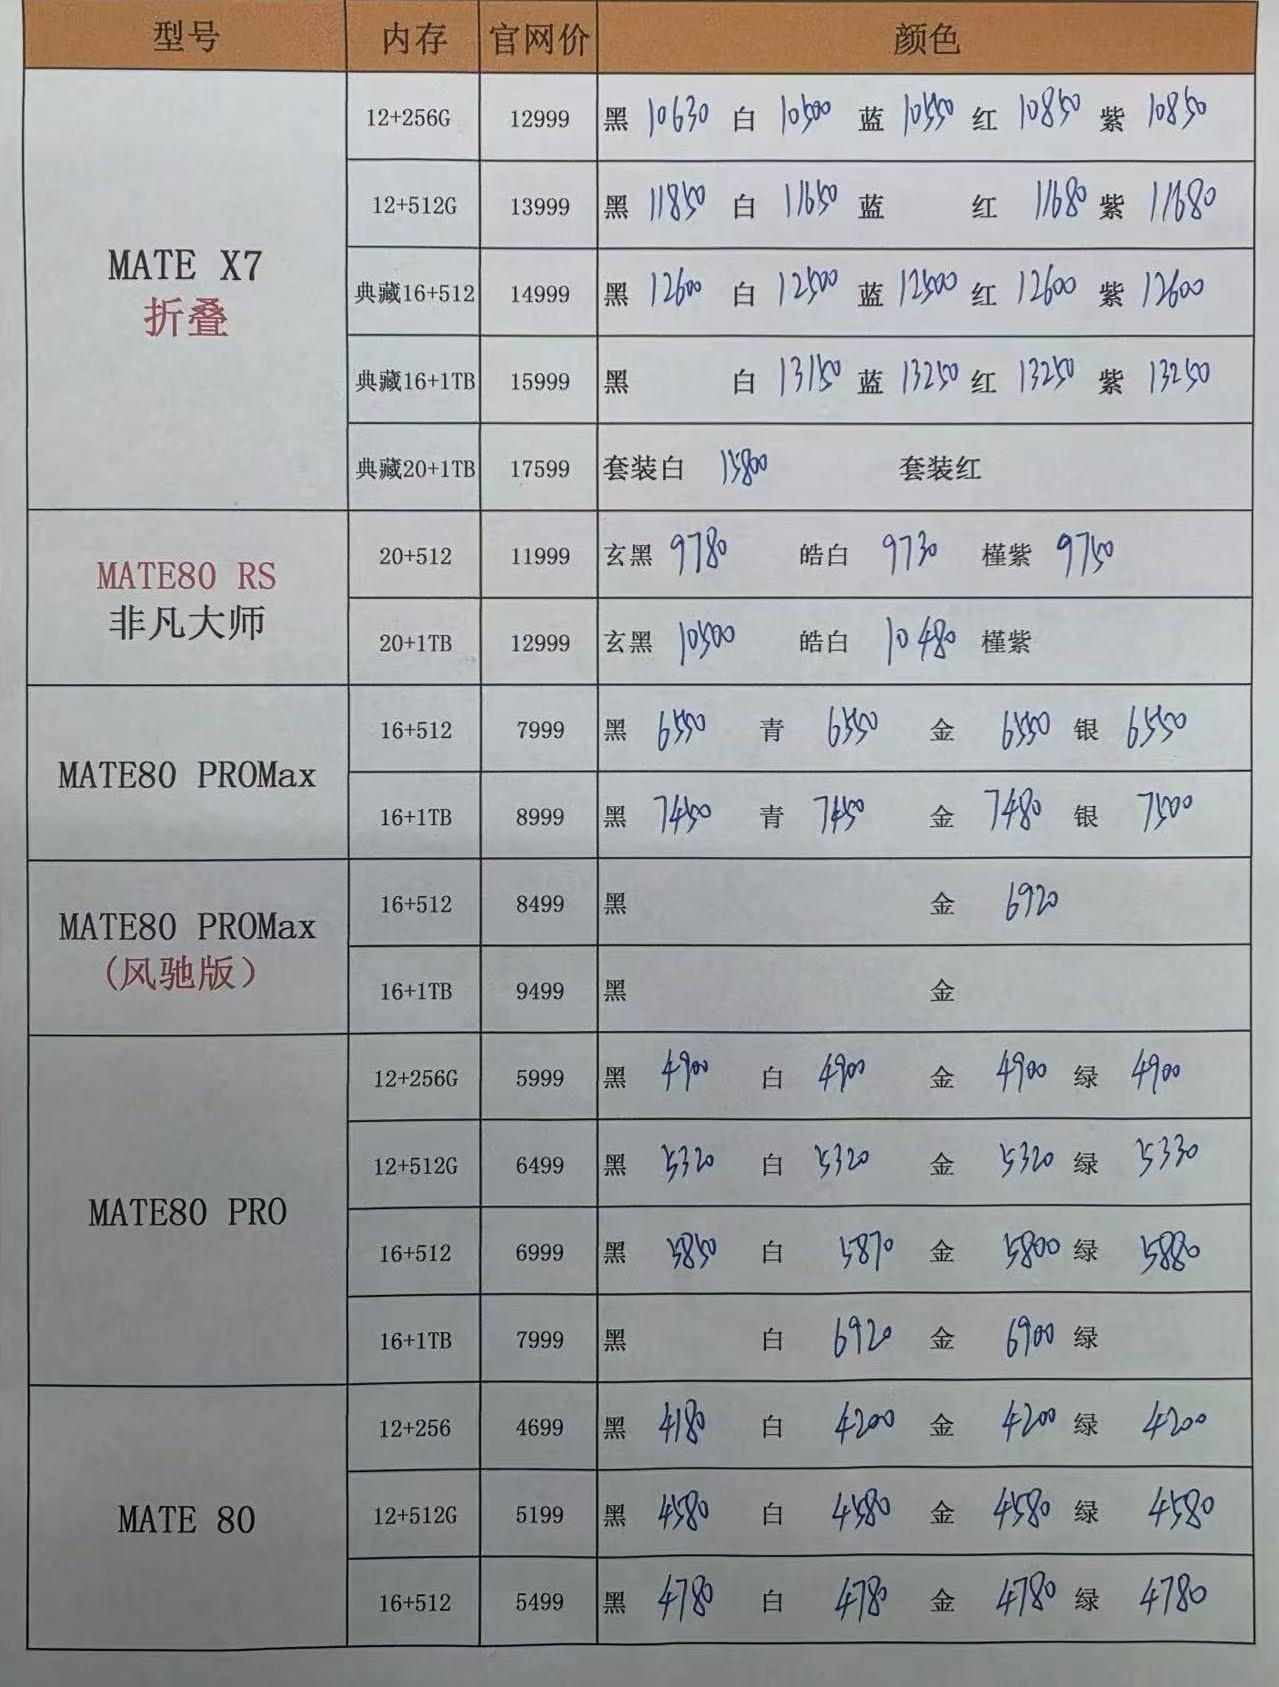 型号 内存 官网价 颜色
12+256G 12999 黑 10630 白 10500 蓝 10550 红 10850 紫 10850
12+512G 13999 黑 11850 白 11650 蓝 红 11680 紫 11680
MATE X7
折叠
典藏16+512 14999 黑 12600 白 12500 蓝 12500 红 12600 紫 12600
典藏16+1TB 15999 黑 白 13150 蓝 13250 红 13250 紫 13250
典藏20+1TB 17599 套装白 15800 套装红
MATE80 RS
非凡大师
20+512 11999 玄黑 9780 皓白 9730 槿紫 9750
20+1TB 12999 玄黑 10500 皓白 10480 槿紫
MATE80 PROMax
16+512 7999 黑 6550 青 6550 金 6550 银 6550
16+1TB 8999 黑 7450 青 7450 金 7480 银 7500
MATE80 PROMax
(风驰版)
16+512 8499 黑 金 6920
16+1TB 9499 黑 金
MATE80 PRO
12+256G 5999 黑 4900 白 4900 金 4900 绿 4900
12+512G 6499 黑 5320 白 5320 金 5320 绿 5330
16+512 6999 黑 5850 白 5870 金 5800 绿 5880
16+1TB 7999 黑 白 6920 金 6900 绿
MATE 80
12+256 4699 黑 4180 白 4200 金 4200 绿 4200
12+512G 5199 黑 4580 白 4580 金 4580 绿 4580
16+512 5499 黑 4780 白 4780 金 4780 绿 4780